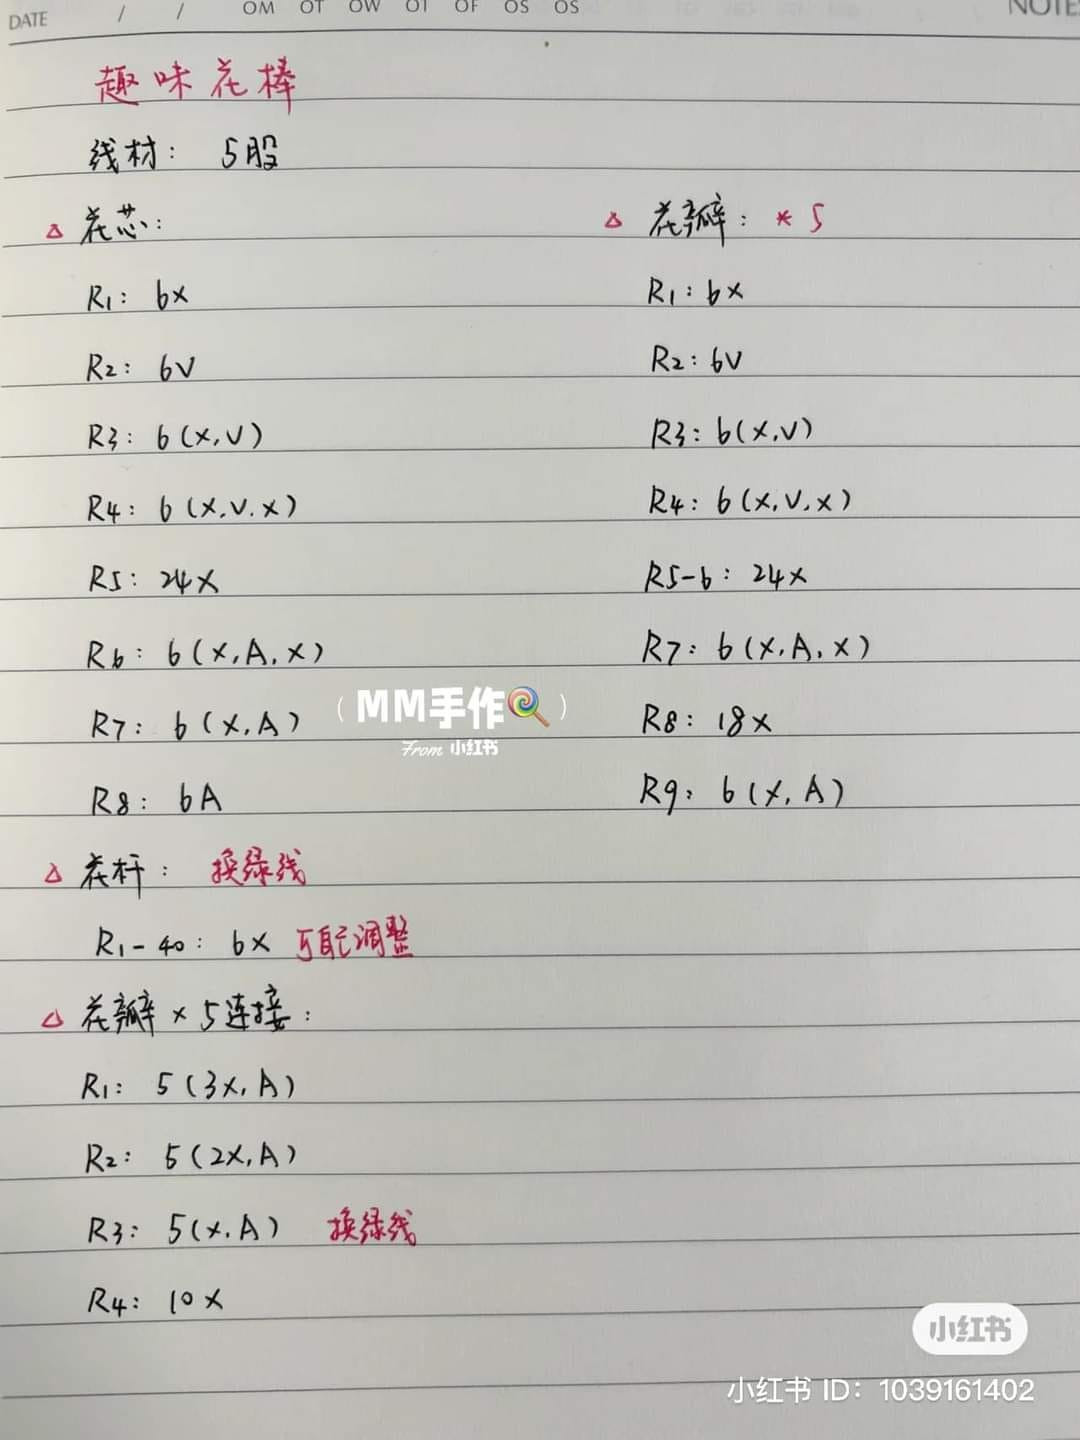 DATE / / OM OT OW OT OF OS OS NOTES
趣味花棒
线材： 5股
△ 花芯：
R1： 6x
R2： 6V
R3： 6(x,V)
R4： 6(x,V.x)
R5： 24x
R6： 6(x,A,x)
R7： 6(x,A)
R8： 6A
△ 花瓣： *5
R1：6x
R2：6V
R3：6(x,V)
R4：6(x,V,x)
R5-6：24x
R7：6(x,A,x)
R8：18x
R9：6(x,A)
（MM手作🍭）
From 小红书
△ 花杆： 换绿线
R1-40：6x 可自己调整
△ 花瓣x5连接：
R1： 5(3x,A)
R2： 5(2x,A)
R3： 5(x.A) 换绿线
R4： 10x
小红书
小红书 ID：1039161402